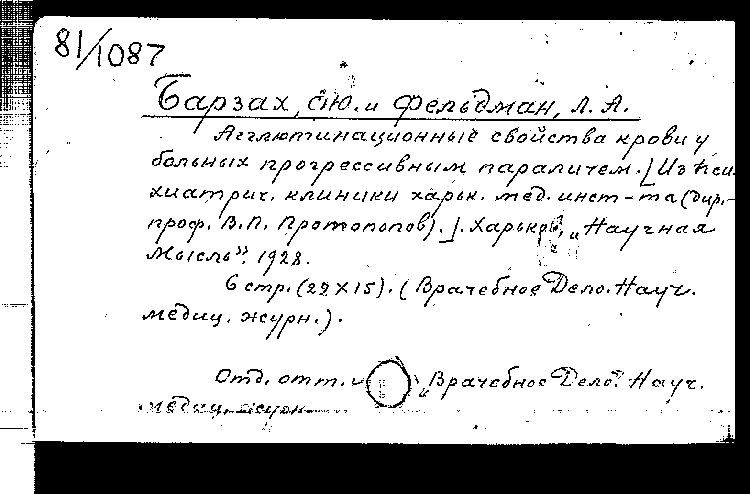 81/1087
Барзах, С.Ю. и Фельдман, Л. А.
Агглютинационные свойства крови у
больных прогрессивным параличем. [Из Пси-
хиатрич. клиники харьк. мед. инст-та (дир.-
проф. В.П. Протопопов).]. Харьков, „Научная
Мысль", 1928.
6 стр. (22 x 15). (Врачебное Дело. Науч.
медиц. журн.).
Отд. отт. и „Врачебное Дело". Науч.
медиц. журн